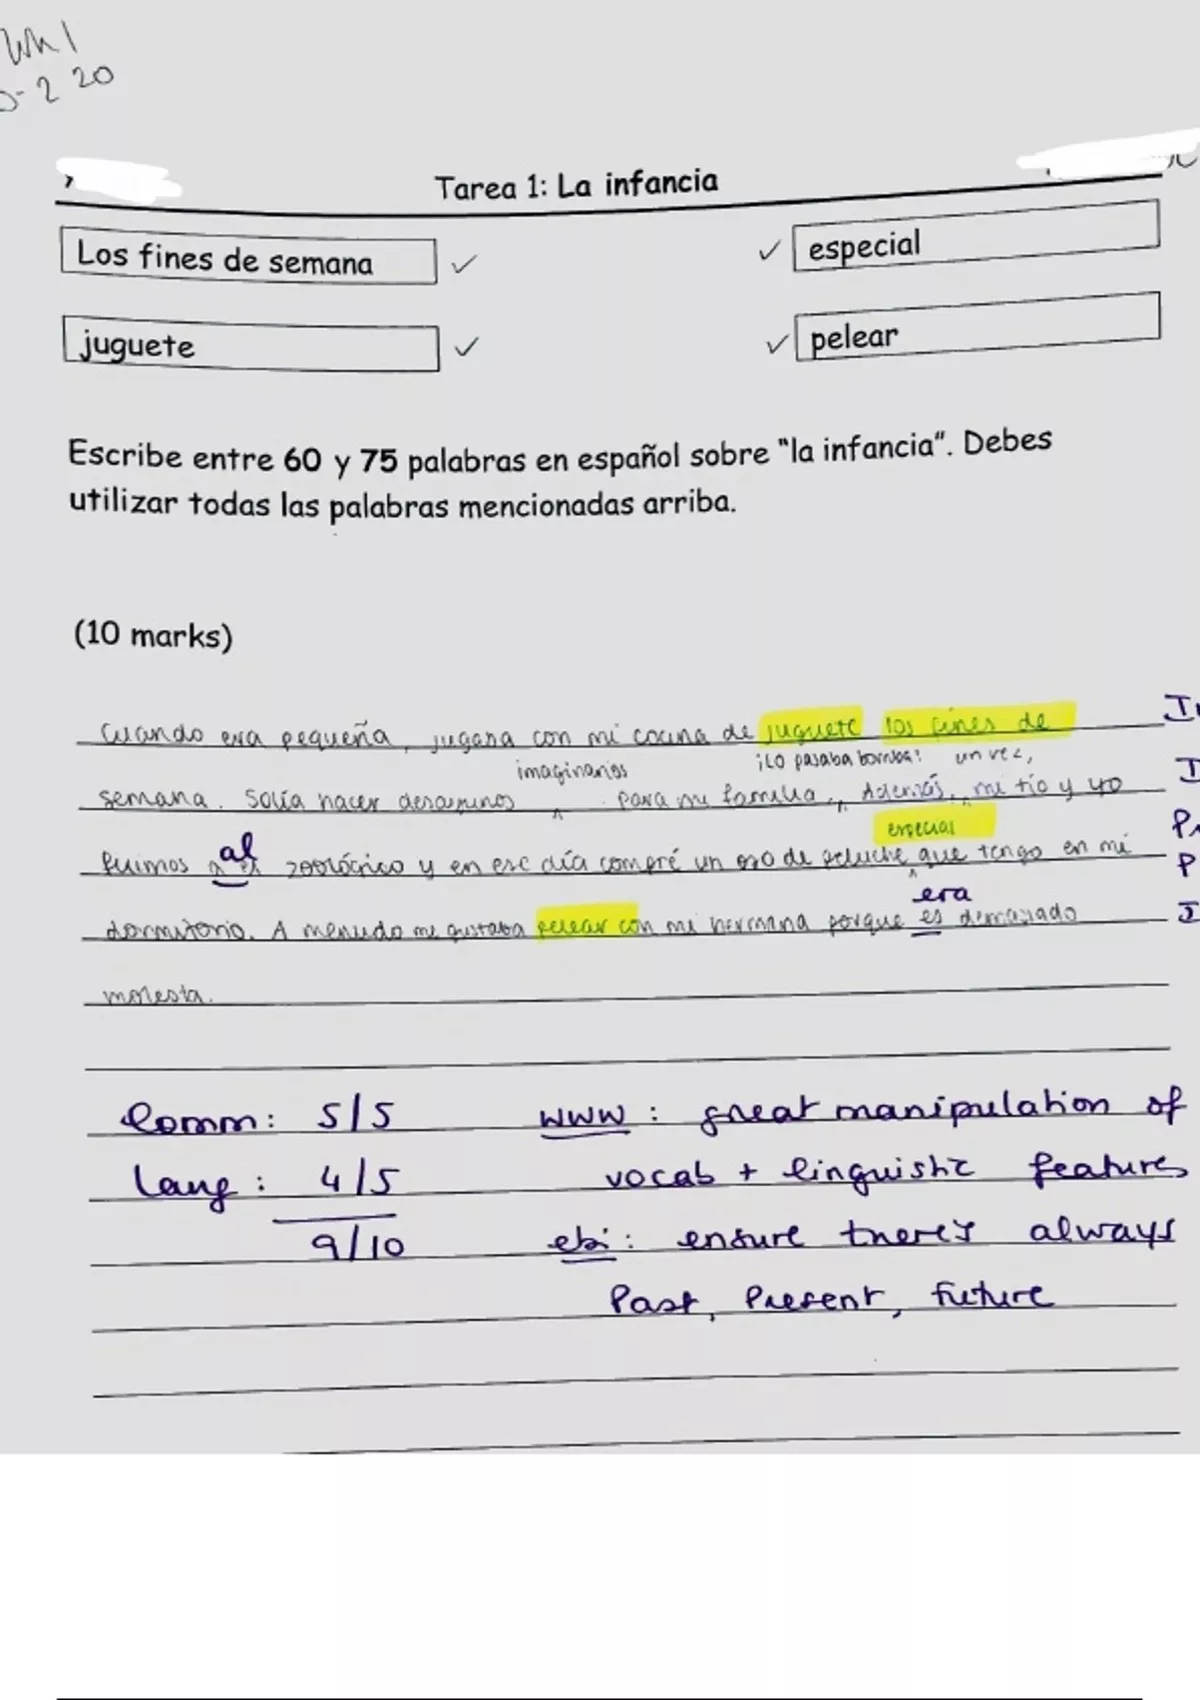 Wk 1
-2 20
Tarea 1: La infancia
Los fines de semana ✓
✓ especial
juguete ✓
✓ pelear
Escribe entre 60 y 75 palabras en español sobre "la infancia". Debes
utilizar todas las palabras mencionadas arriba.
(10 marks)
Cuando era pequeña, jugaba con mi cocina de juguete los fines de
imaginarios ¡Lo pasaba bomba! un vez,
semana. Solía hacer desayunos para mi familia. Además, mi tío y yo
al especial
fuimos a el zoológico y en ese día compré un oso de peluche que tengo en mi
era
dormitorio. A menudo me gustaba pelear con mi hermana porque es demasiado
molesta.
Comm: 5/5 WWW: great manipulation of
Lang: 4/5 vocab + linguistic features
9/10 ebi: ensure there's always
Past, Present, future